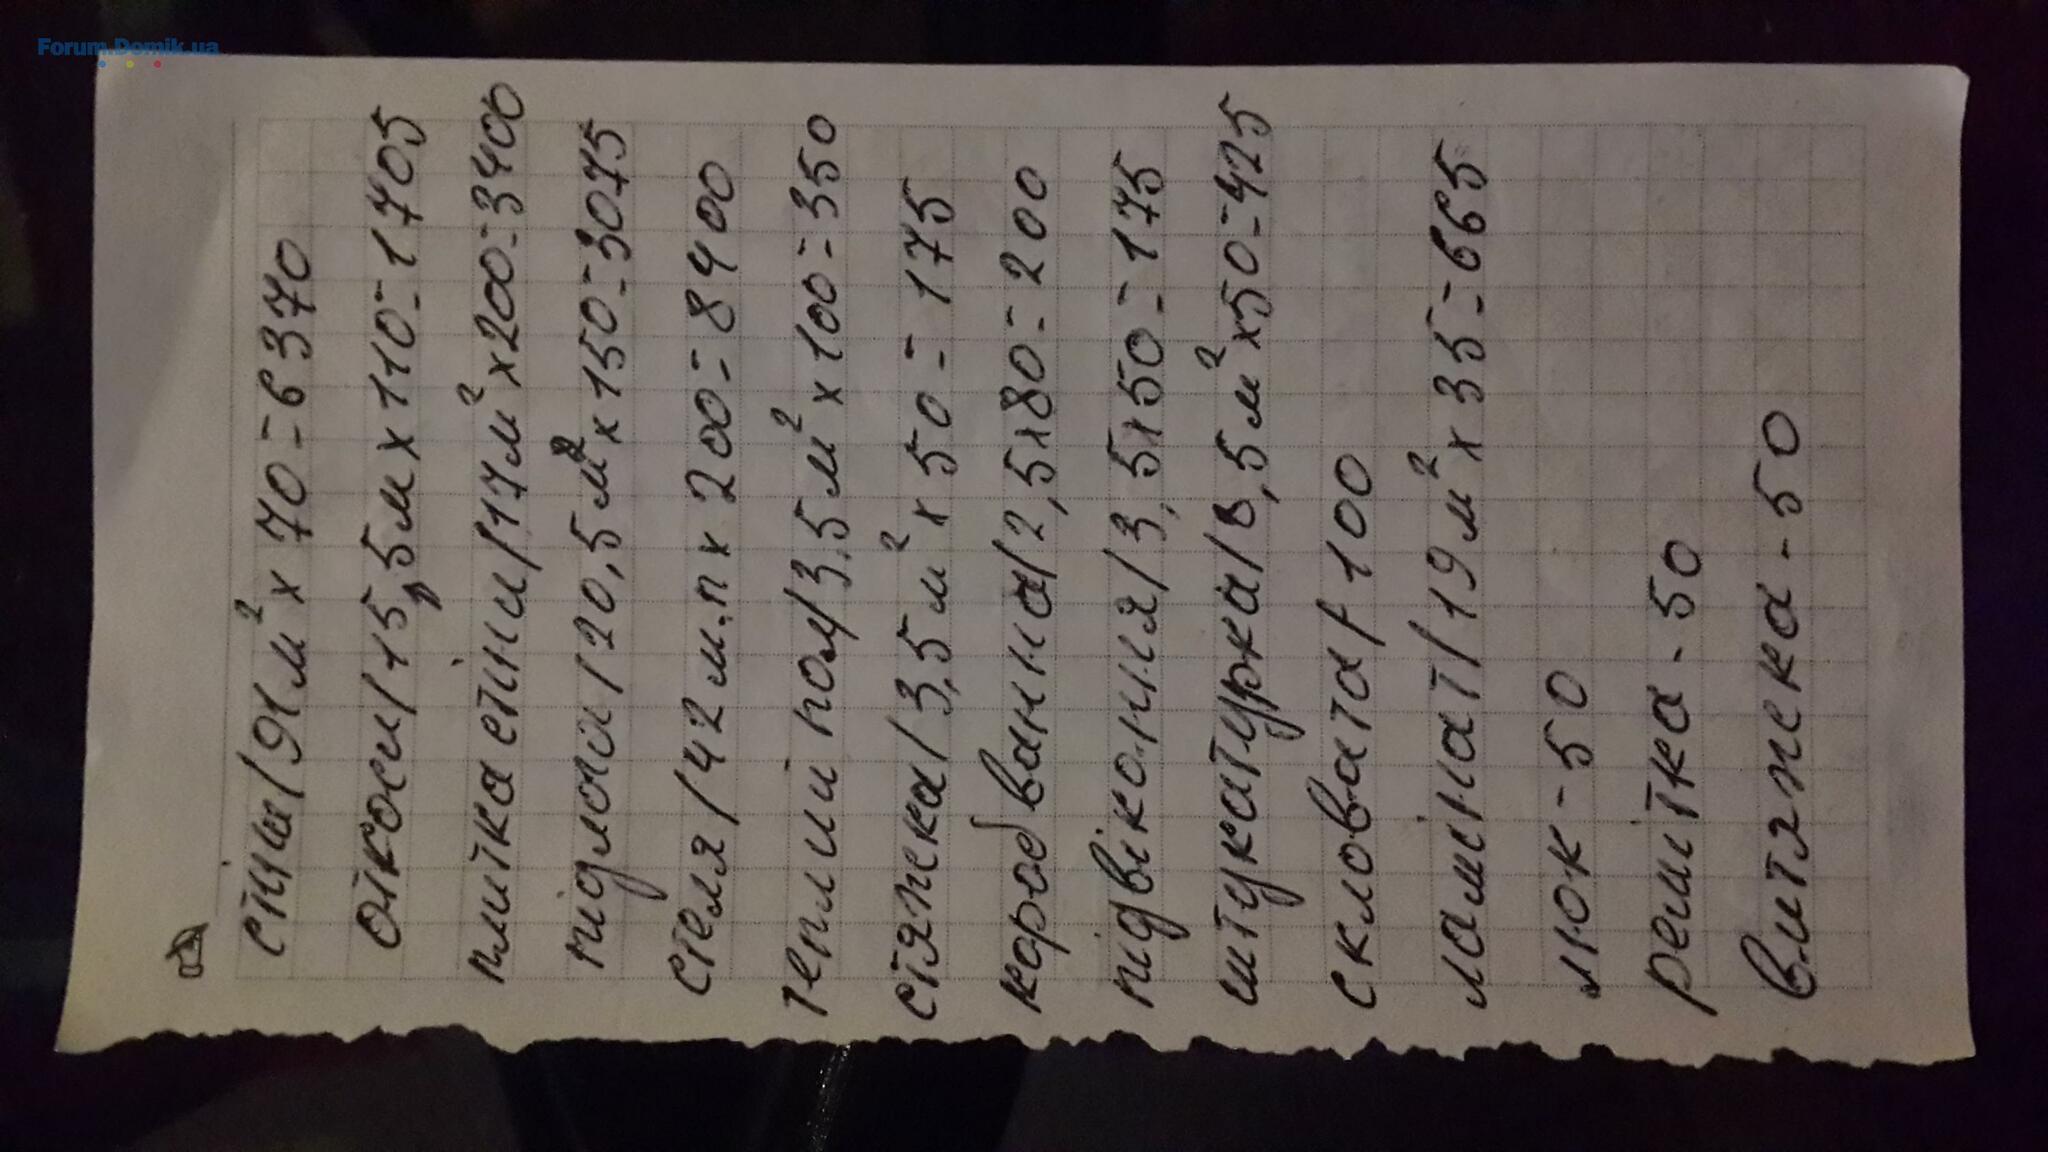 Forum.Domik.ua
стіна/91м² х 70=6370
откоси/15,5м х 110=1705
плитка стіни/17м² х 200=3400
підлога/20,5м² х 150=3075
стеля/42 м.п х 200=8400
теплий пол/3.5м² х 100=350
стяжка/3,5м² х 50=175
короб ванна/2,5х80=200
підвіконня/3,5х50=175
штукатурка/8,5м² х50=425
скловата/100
ламінат/19м² х 35=665
люк-50
решітка-50
витяжка-50